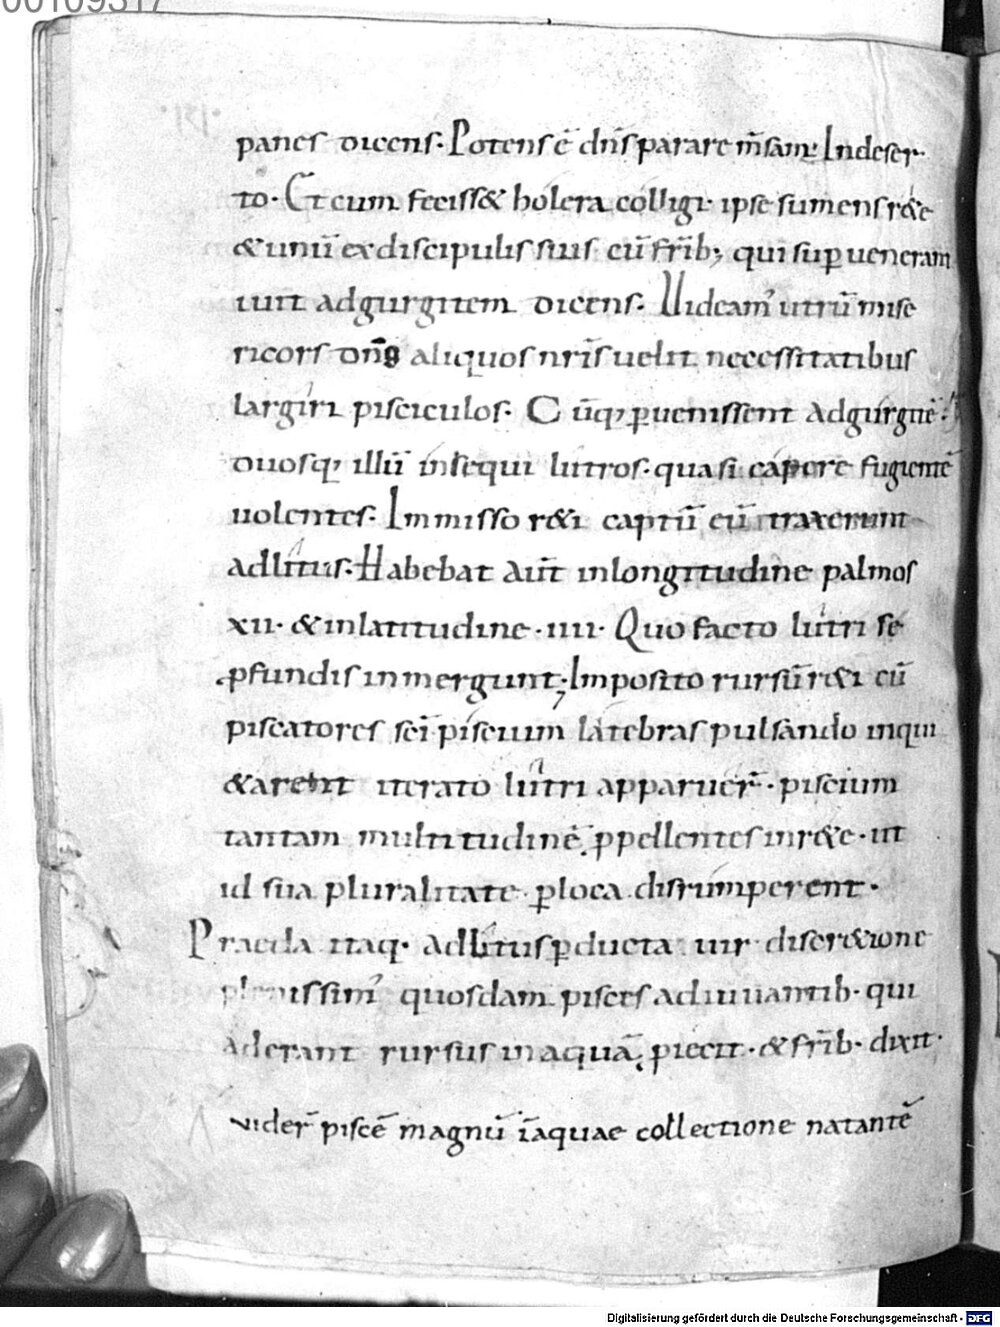 00109317
panes dicens· Potens ē dn̄s parare m̄sam Indeser
to· Et cum feciss& holera colligi· ipse sumens r&e
& unū ex discipulis suis cū fr̄ib; qui sup̱uenerant
iuit adgurgitem dicens· Uideam' utrū mise
ricors dn̄s aliquos nr̄is uelit necessitatibus
largiri pisciculos· Cūq; p̱uenissent adgurgitē·
duosq; illū insequi lutros· quasi capere fugientē
uolentes· Immisso r&i captū eū traxerunt
adlitus· Habebat aūt inlongitudine palmos
xii· & inlatitudine ·iiii· Quo facto lutri se
ꝓfundis inmergunt; Imposito rursū r&i cū
piscatores sc̄i piscium latebras pulsando inqui
&arent iterato lutri apparuer̄· piscium
tantam multitudinē ꝓpellentes inr&e· ut
id sua pluralitate p̱ loca disrumperent·
Praeda itaq· adlitus p̱ducta uir discr&ione
plenissim' quosdam pisces adiuuantib· qui
aderant rursus inaquā piecit· & fr̄ib· dixit·
vider̄ piscē magnū īaquae collectione natantē
Digitalisierung gefördert durch die Deutsche Forschungsgemeinschaft - DFG